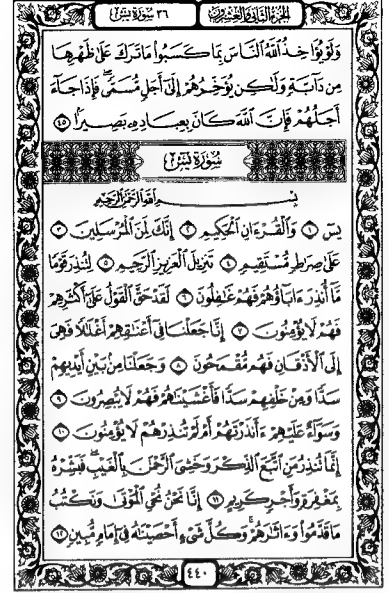 الجزء الثاني والعشرون
٣٦ سورة يس
وَلَوْ يُؤَاخِذُ ٱللَّهُ ٱلنَّاسَ بِمَا كَسَبُوا۟ مَا تَرَكَ عَلَىٰ ظَهْرِهَا
مِن دَآبَّةٍ وَلَٰكِن يُؤَخِّرُهُمْ إِلَىٰٓ أَجَلٍ مُّسَمًّى ۖ فَإِذَا جَآءَ
أَجَلُهُمْ فَإِنَّ ٱللَّهَ كَانَ بِعِبَادِهِۦ بَصِيرًۢا ٤٥
سورة يس
بِسْمِ ٱللَّهِ ٱلرَّحْمَٰنِ ٱلرَّحِيمِ
يسٓ ١ وَٱلْقُرْءَانِ ٱلْحَكِيمِ ٢ إِنَّكَ لَمِنَ ٱلْمُرْسَلِينَ ٣
عَلَىٰ صِرَٰطٍ مُّسْتَقِيمٍ ٤ تَنزِيلَ ٱلْعَزِيزِ ٱلرَّحِيمِ ٥ لِتُنذِرَ قَوْمًا
مَّآ أُنذِرَ ءَابَآؤُهُمْ فَهُمْ غَٰفِلُونَ ٦ لَقَدْ حَقَّ ٱلْقَوْلُ عَلَىٰٓ أَكْثَرِهِمْ
فَهُمْ لَا يُؤْمِنُونَ ٧ إِنَّا جَعَلْنَا فِىٓ أَعْنَٰقِهِمْ أَغْلَٰلًا فَهِىَ
إِلَى ٱلْأَذْقَانِ فَهُم مُّقْمَحُونَ ٨ وَجَعَلْنَا مِنۢ بَيْنِ أَيْدِيهِمْ
سَدًّا وَمِنْ خَلْفِهِمْ سَدًّا فَأَغْشَيْنَٰهُمْ فَهُمْ لَا يُبْصِرُونَ ٩
وَسَوَآءٌ عَلَيْهِمْ ءَأَنذَرْتَهُمْ أَمْ لَمْ تُنذِرْهُمْ لَا يُؤْمِنُونَ ١٠
إِنَّمَا تُنذِرُ مَنِ ٱتَّبَعَ ٱلذِّكْرَ وَخَشِىَ ٱلرَّحْمَٰنَ بِٱلْغَيْبِ ۖ فَبَشِّرْهُ
بِمَغْفِرَةٍ وَأَجْرٍ كَرِيمٍ ١١ إِنَّا نَحْنُ نُحْىِ ٱلْمَوْتَىٰ وَنَكْتُبُ
مَا قَدَّمُوا۟ وَءَاثَٰرَهُمْ ۚ وَكُلَّ شَىْءٍ أَحْصَيْنَٰهُ فِىٓ إِمَامٍ مُّبِينٍ ١٢
٤٤٠